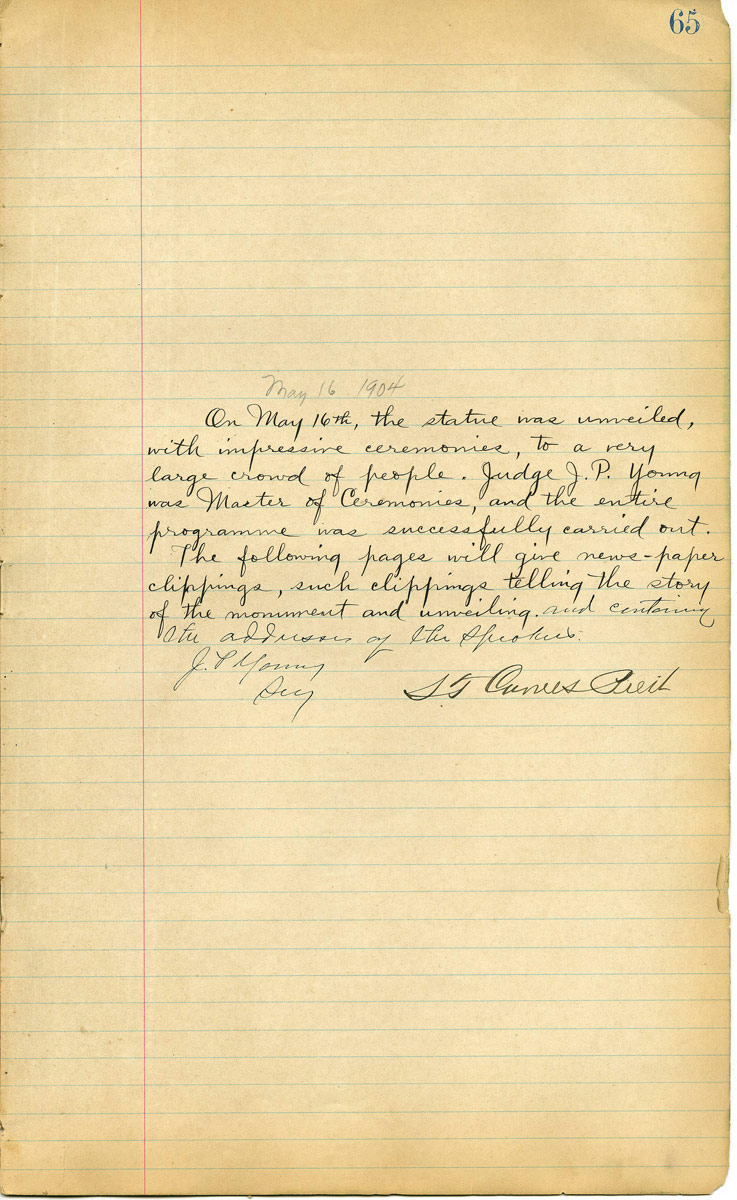 65
May 16 1904
On May 16th, the statue was unveiled,
with impressive ceremonies, to a very
large crowd of people. Judge J.P. Young
was Master of Ceremonies, and the entire
programme was successfully carried out.
The following pages will give news-paper
clippings, such clippings telling the story
of the monument and unveiling. and containing
the addresses of the speakers.
J. P. Young
Secy
S T Carnes Presdt